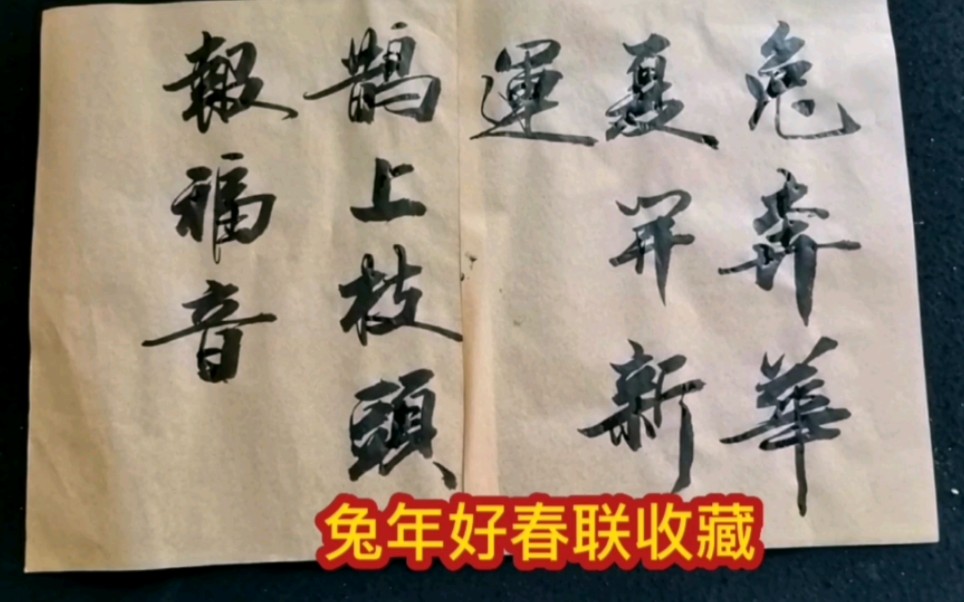 兔奔華
夏开新
運
鹊上枝頭
報福音
兔年好春联收藏